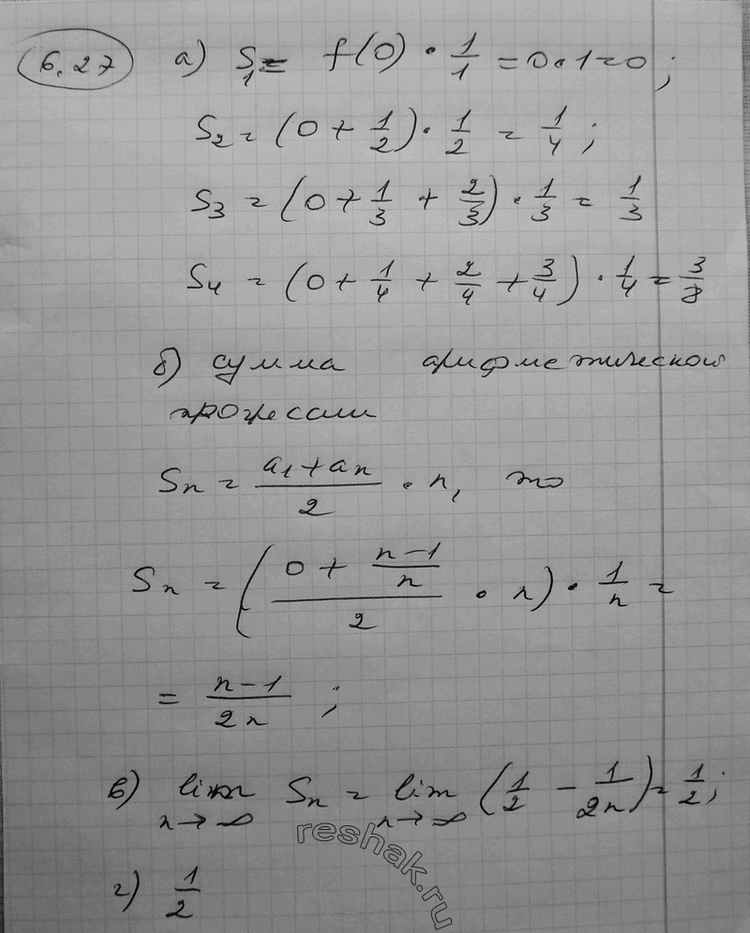 6.27 а) S₁ = f(0) · 1/1 = 0·1=0;
S₂ = (0 + 1/2) · 1/2 = 1/4;
S₃ = (0 + 1/3 + 2/3) · 1/3 = 1/3
S₄ = (0 + 1/4 + 2/4 + 3/4) · 1/4 = 3/8
б) сумма арифметической
прогрессии
Sₙ = (a₁ + aₙ)/2 · n, то
Sₙ = ((0 + (n-1)/n)/2 · n) · 1/n =
= (n-1)/2n ;
в) lim n→∞ Sₙ = lim n→∞ (1/2 - 1/2n) = 1/2;
г) 1/2
reshak.ru